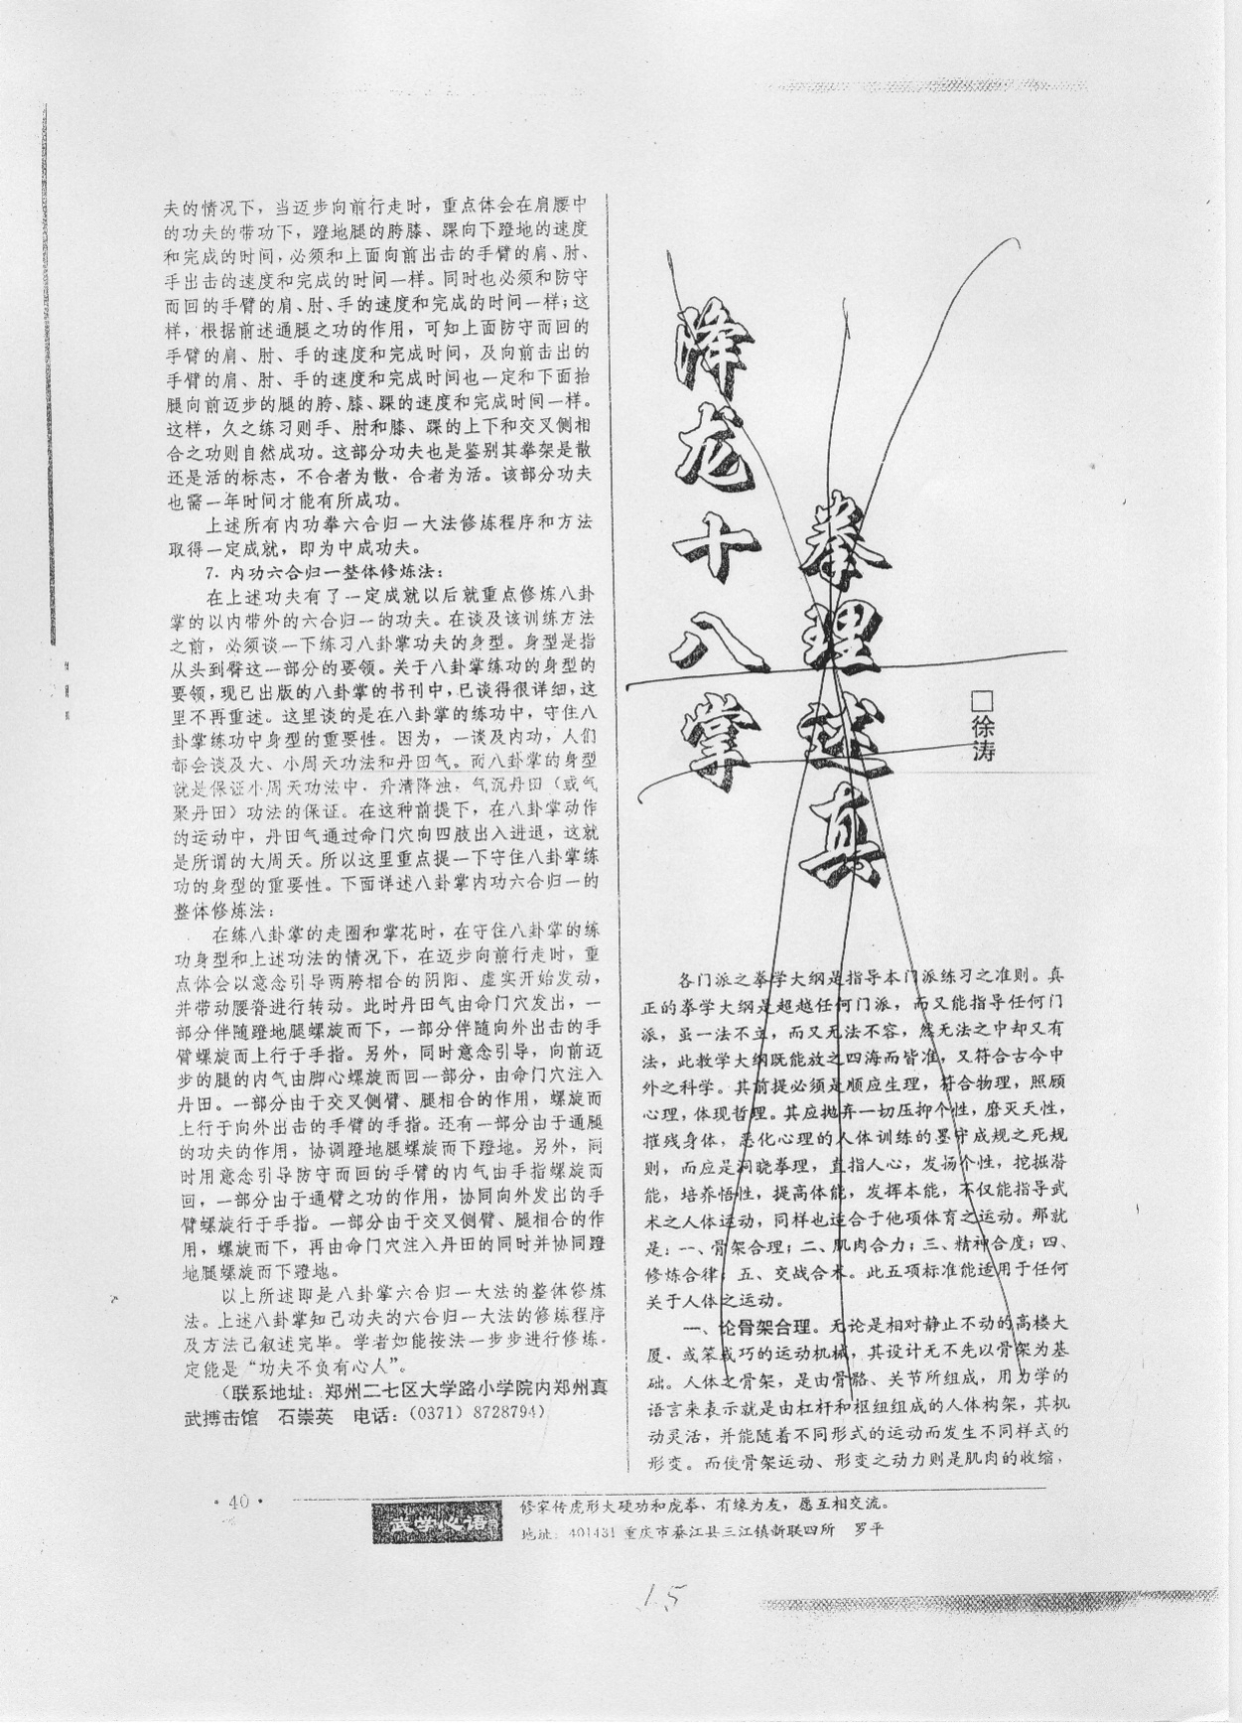 夫的情况下，当迈步向前行走时，重点体会在肩腰中
的功夫的带功下，蹬地腿的胯膝、踝向下蹬地的速度
和完成的时间，必须和上面向前出击的手臂的肩、肘、
手出击的速度和完成的时间一样。同时也必须和防守
而回的手臂的肩、肘、手的速度和完成的时间一样；这
样，根据前述通腿之功的作用，可知上面防守而回的
手臂的肩、肘、手的速度和完成时间，及向前击出的
手臂的肩、肘、手的速度和完成时间也一定和下面抬
腿向前迈步的腿的胯、膝、踝的速度和完成时间一样。
这样，久之练习则手、肘和膝、踝的上下和交叉侧相
合之功则自然成功。这部分功夫也是鉴别其拳架是散
还是活的标志，不合者为散，合者为活。该部分功夫
也需一年时间才能有所成功。
上述所有内功拳六合归一大法修炼程序和方法
取得一定成就，即为中成功夫。
7．内功六合归一整体修炼法：
在上述功夫有了一定成就以后就重点修炼八卦
掌的以内带外的六合归一的功夫。在谈及该训练方法
之前，必须谈一下练习八卦掌功夫的身型。身型是指
从头到臂这一部分的要领。关于八卦掌练功的身型的
要领，现已出版的八卦掌的书刊中，已谈得很详细，这
里不再重述。这里谈的是在八卦掌的练功中，守住八
卦掌练功中身型的重要性。因为，一谈及内功，人们
都会谈及大、小周天功法和丹田气。而八卦掌的身型
就是保证小周天功法中，升清降浊，气沉丹田（或气
聚丹田）功法的保证。在这种前提下，在八卦掌动作
的运动中，丹田气通过命门穴向四肢出入进退，这就
是所谓的大周天。所以这里重点提一下守住八卦掌练
功的身型的重要性。下面详述八卦掌内功六合归一的
整体修炼法：
在练八卦掌的走圈和掌花时，在守住八卦掌的练
功身型和上述功法的情况下，在迈步向前行走时，重
点体会以意念引导两胯相合的阴阳、虚实开始发动，
并带动腰脊进行转动。此时丹田气由命门穴发出，一
部分伴随蹬地腿螺旋而下，一部分伴随向外出击的手
臂螺旋而上行于手指。另外，同时意念引导，向前迈
步的腿的内气由脚心螺旋而回一部分，由命门穴注入
丹田。一部分由于交叉侧臂、腿相合的作用，螺旋而
上行于向外出击的手臂的手指。还有一部分由于通腿
的功夫的作用，协调蹬地腿螺旋而下蹬地。另外，同
时用意念引导防守而回的手臂的内气由手指螺旋而
回，一部分由于通臂之功的作用，协同向外发出的手
臂螺旋行于手指。一部分由于交叉侧臂、腿相合的作
用，螺旋而下，再由命门穴注入丹田的同时并协同蹬
地腿螺旋而下蹬地。
以上所述即是八卦掌六合归一大法的整体修炼
法。上述八卦掌知己功夫的六合归一大法的修炼程序
及方法已叙述完毕。学者如能按法一步步进行修炼，
定能是“功夫不负有心人”。
（联系地址：郑州二七区大学路小学院内郑州真
武搏击馆　石崇英　电话：(0371) 8728794）
降龙十八掌
拳理述真
□徐涛
各门派之拳学大纲是指导本门派练习之准则。真
正的拳学大纲是超越任何门派，而又能指导任何门
派，虽一法不立，而又无法不容，然无法之中却又有
法，此教学大纲既能放之四海而皆准，又符合古今中
外之科学。其前提必须是顺应生理，符合物理，照顾
心理，体现哲理。其应抛弃一切压抑个性，磨灭天性，
摧残身体，恶化心理的人体训练的墨守成规之死规
则，而应是洞晓拳理，直指人心，发扬个性，挖掘潜
能，培养悟性，提高体能，发挥本能，不仅能指导武
术之人体运动，同样也适合于他项体育之运动。那就
是：一、骨架合理；二、肌肉合力；三、精神合度；四、
修炼合律；五、交战合术。此五项标准能适用于任何
关于人体之运动。
一、论骨架合理。无论是相对静止不动的高楼大
厦，或笨或巧的运动机械，其设计无不先以骨架为基
础。人体之骨架，是由骨骼、关节所组成，用力学的
语言来表示就是由杠杆和枢纽组成的人体构架，其机
动灵活，并能随着不同形式的运动而发生不同样式的
形变。而使骨架运动、形变之动力则是肌肉的收缩，
·40·
武学心语
修家传虎形大硬功和虎拳，有缘为友，愿互相交流。
地址：401431 重庆市綦江县三江镇新联四所　罗平
15